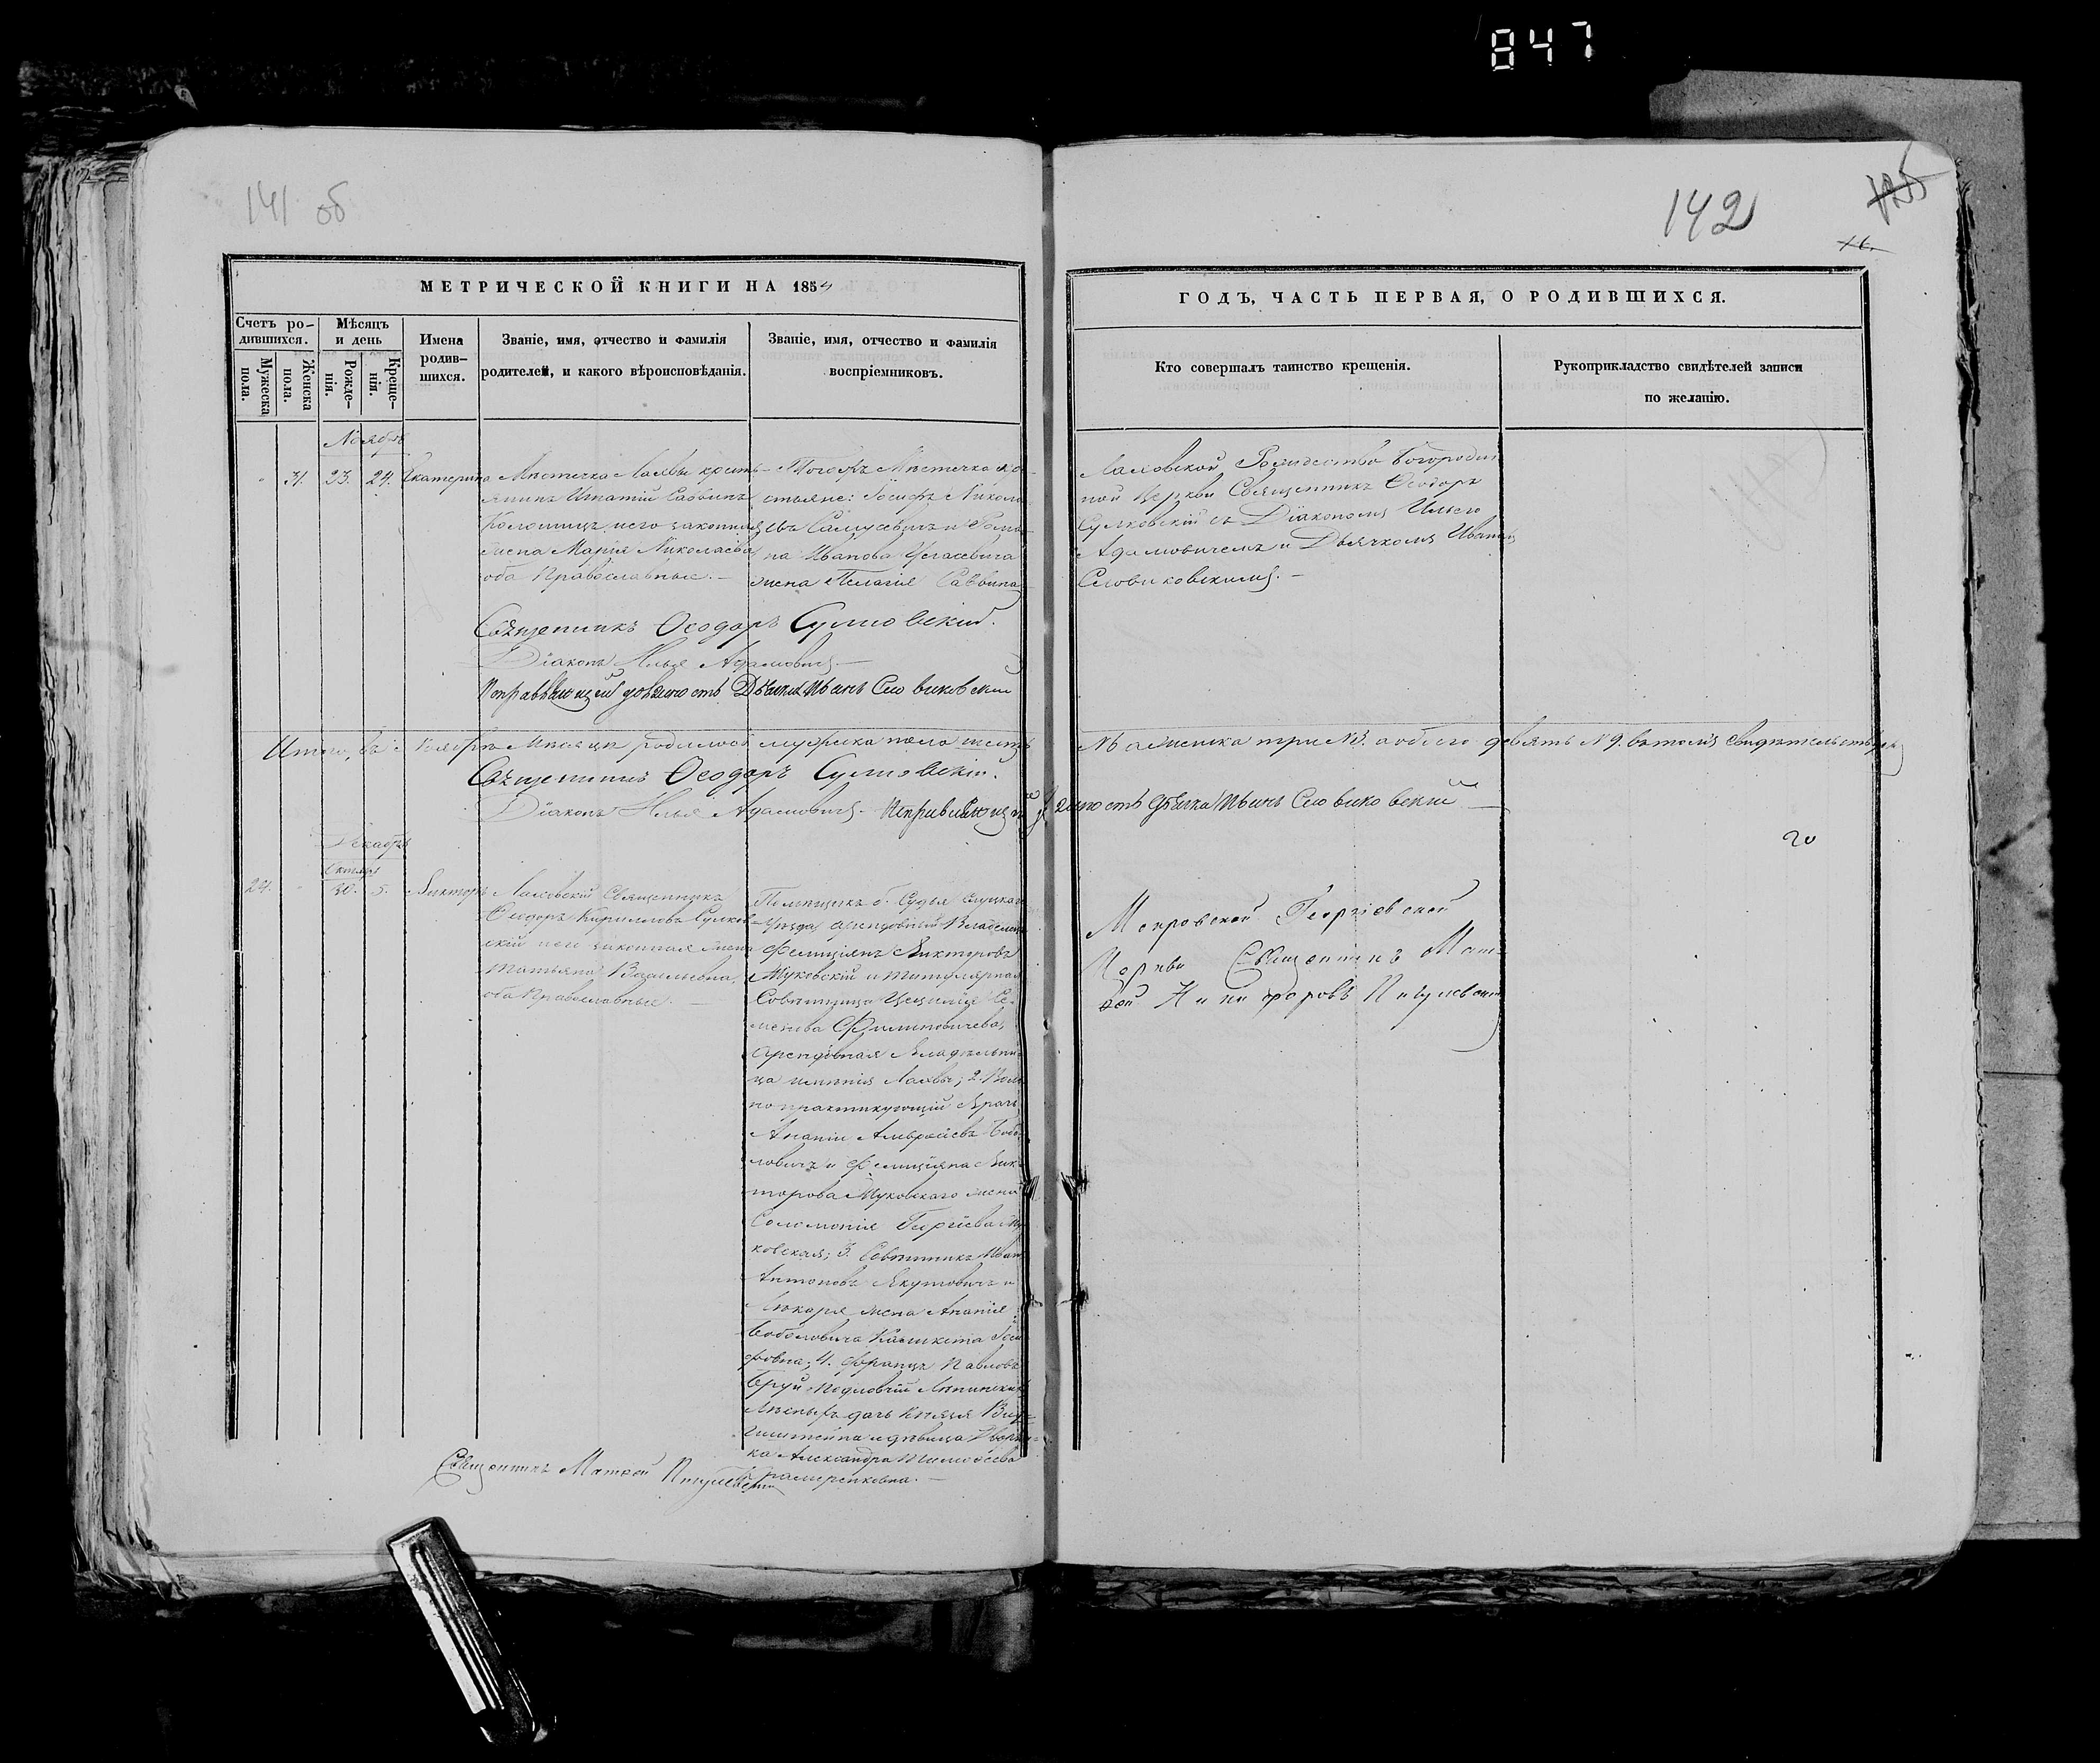 847
141 об
142
МЕТРИЧЕСКОЙ КНИГИ НА 1854
ГОДЪ, ЧАСТЬ ПЕРВАЯ, О РОДИВШИХСЯ.
Счетъ ро-
дившихся.
Мужеска
пола.
Женска
пола.
Мѣсяцъ
и день
Рожде-
нія.
Креще-
нія.
Имена
родив-
шихся.
Званіе, имя, отчество и фамилія
родителей, и какого вѣроисповѣданія.
Званіе, имя, отчество и фамилія
воспріемниковъ.
Кто совершалъ таинство крещенія.
Рукоприкладство свидѣтелей записи
по желанію.
Ноябрь
31. 23. 24. Екатерина
Мѣстечка Лахвы кресть-
янинъ Игнатій Саввинъ
законная
жена Марія Николаева
оба Православные.—
Тогожъ Мѣстечка кре-
стьяне: Іосифъ Никола-
евъ и Рома-
на Иванова
жена Пелагія Саввина
Лаховской Рождество Богороди-
чной Церкви Священникъ Ѳеодоръ
Сулковскій съ Діакономъ Ильею
Адамовичемъ и Дьячкомъ Иваномъ
Словиковскимъ.—
Священникъ Ѳеодоръ Сулковскій.
Діаконъ Илья Адамовичъ.—
Исправляющій должность Дьячка Иванъ Словиковскій
Итого, въ Ноябрѣ Мѣсяцѣ родилось мужеска пола шесть
№ 6 а женска три № 3. а обоего девять № 9. въ томъ свидѣтельствуемъ
Священникъ Ѳеодоръ Сулковскій.
Діаконъ Илья Адамовичъ. Исправляющій должность Дьячка Иванъ Словиковскій
Декабрь
Октябрь
24. 30. 5. Викторъ
Лаховскій Священникъ
Ѳеодоръ Кирилловъ Сулков-
скій и его законная жена
Татьяна Васильевна,
оба Православные.—
Помѣщикъ б. Судья Слуцкаго
Уѣзда арендовный Владѣлецъ
Фелиціянъ Викторовъ
Жуковскій и титулярная
Совѣтница Цецилія Се-
менова Филиповичева,
арендовная Владѣльни-
ца имѣнія Лахвы; 2. Воль-
но практикующій Врачъ
Ананій Амвросіевъ Бобо-
ловичъ и Фелиціяна Вик-
торова Жуковскаго жена
Соломонія Георгіева Жу-
ковская; 3. Совѣтникъ Иванъ
Антоновъ Якутовичъ и
Лѣкаря жена Ананія
Боболовича Іоси-
фовна; 4. Францъ Павловъ
дачъ Князя Вит-
генштейна и дѣвица Дворян-
ка Александра Тимоѳеева
Мокровской Георгіевской
Церкви Священникъ Мат-
ѳей Никифоровъ Пигулевскій
Священникъ Матѳей Пигулевскій